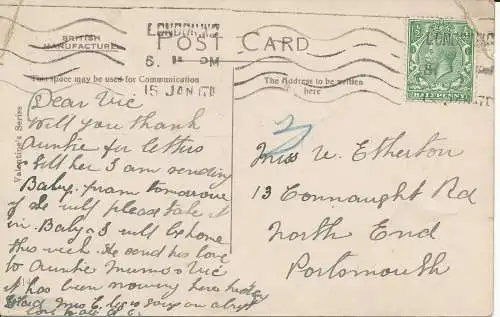 BRITISH
MANUFACTURE
POST CARD
LONDON.N.
6. PM
15 JAN 17
This space may be used for Communication
The Address to be written
here
Valentine's Series
HALFPENNY
Dear Vic
Will you thank
Auntie for letters
& tell her I am sending
Baby. pram tomorrow
if she will please take it
in. Baby & I will be home
this week. He send his love
to Auntie Mums & Vic
it has been snowing here today
Glad Mrs E. is
love
Miss V. Etherton
13 Connaught Rd
North End
Portsmouth